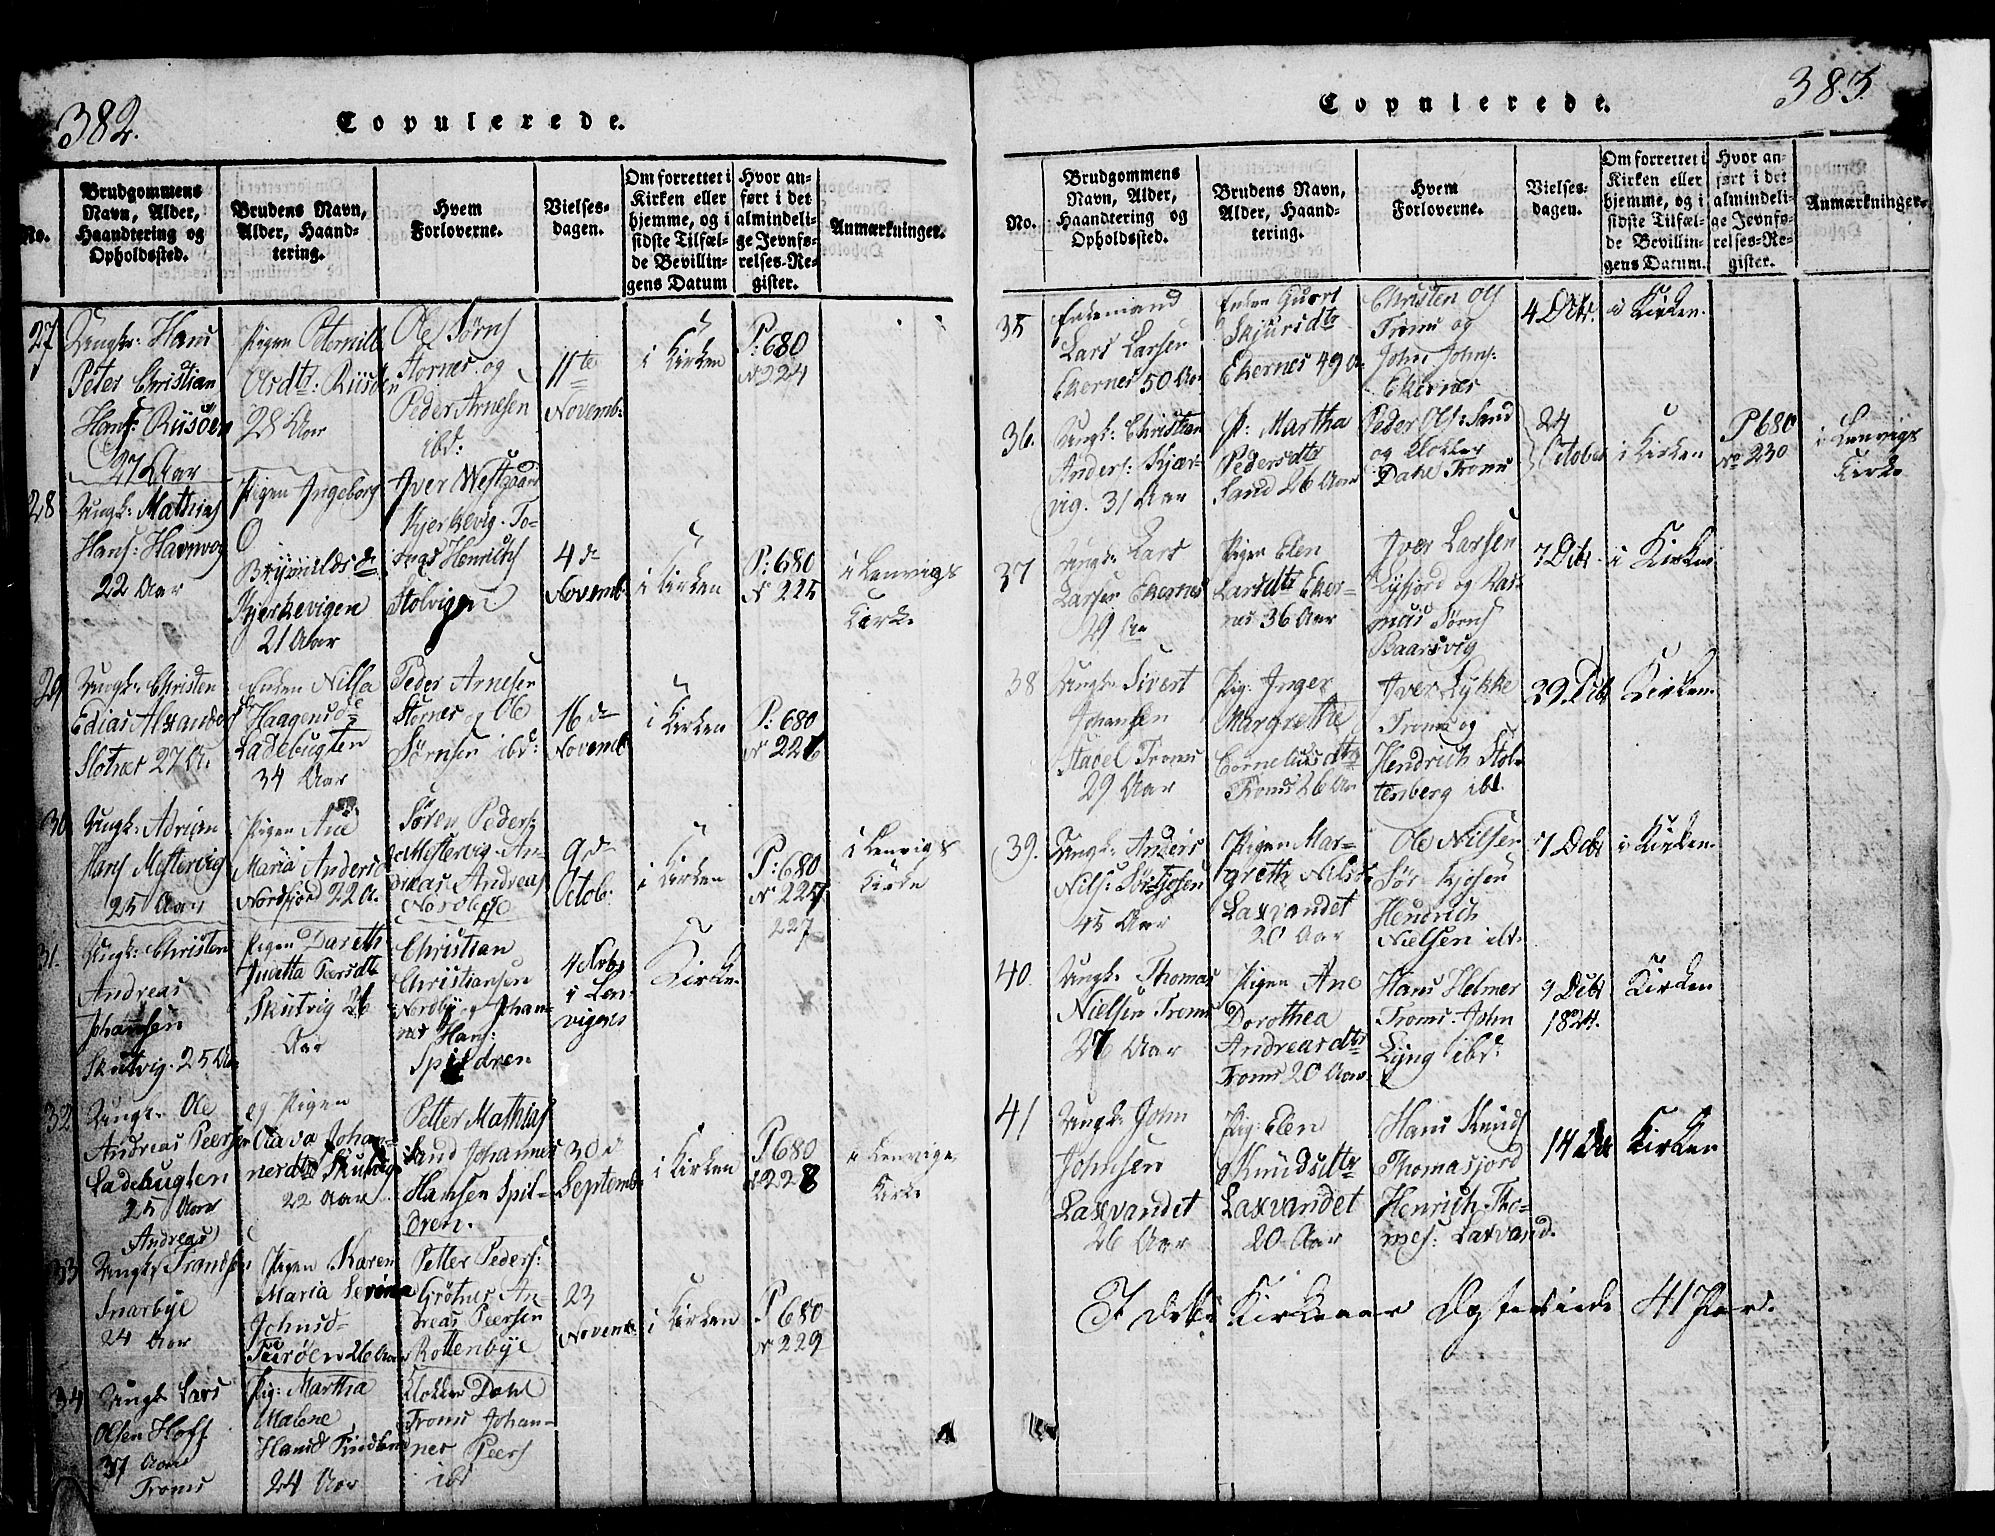 382.
Copulerede.
No.
Brudgommens
Navn, Alder,
Haandtering og
Opholdssted.
Brudens Navn,
Alder, Haand-
tering.
Hvem
Forloverne.
Vielses-
dagen.
Om forrettet i
Kirken eller
hjemme, og i
sidste Tilfæl-
de Bevillin-
gens Datum
Hvor an-
ført i det
almindeli-
ge Jevnfø-
relses-Re-
gister.
Anmærkninger.
27
Ungk: Hans
Peter Christian
Hans: Riisöen
27 Aar
Pigen Peternill
Ardtr: Riisöen
28 Aar
Ole Sörns
Stornes og
Peder Arnesen
ibd:
11te
Novemb:
i Kirken
P: 680
No 224
28
Ungk: Mathias
Hans: Havnvog
22 Aar
Pigen Ingeborg
O
Brynildsd
Kjerkevigen
21 Aar
Iver Westgaard
Kjerkevig. To-
Henrichs
Stolvigen
4de
Novemb
i Kirken
P: 680
No 225
i Lenvigs
Kirke
29
Ungk: Christen
Edias Alxanders
Slotnes 27 A.
Enken Nilla
Haagensd
Ladebugten
34 Aar
Peder Arnesen
Stornes og Ole
Sörnsen ibd:
16de
Novemb
i Kirken
P: 680
No 226
30
Ungk: Adrian
Hans Mestervig
25 Aar
Pigen Ane
Maria Andersd
Nordfjord 22 A.
Sören Peders:
Mestervig. An-
dreas Andreas
9de
Octob:
i Kirken
P: 680
No 227
227
i Lenvigs
Kirke
31.
Ungk: Christen
Andreas
Johansen
Skutvig. 25 Aar
Pigen Dareth
Peersdtr
Skutvig 26
Aar
Christian
Christiansen
Nordby og Johan-
nes Hans:
Spildren
4 Nvbr
i Len-
vigens
Kirke.
32
Ungk: Ole
Andreas Peersen
Ladebugten
25 Aar
og Pigen
Johan-
nesdtr Skutvig
22 Aar
Petter Mathias
Sand Johannes
Hansen Spil-
dren.
30 d
Septemb
i Kirken
P 680
No 228
i Lenvigs
Kirke
33
Andreas
Ungk: Trandsen
Snarbye
24 Aar
Pigen Karen
Maria Serina
Johnsd
26 Aar
Petter Peders:
Grötnes An-
dreas Peersen
Rottenbye
23
Novemb
i Kirken
P 680
No 229
34
Ungk: Lars
Olsen Hoff
37 Aar
Troms
Pig: Martha
Malene
Hansd
24 Aar
Klokker Dahl
Troms Johan-
nes Peers
ibd
383.
Copulerede.
No.
Brudgommens
Navn, Alder,
Haandtering og
Opholdssted.
Brudens Navn,
Alder, Haand-
tering.
Hvem
Forloverne.
Vielses-
dagen.
Om forrettet i
Kirken eller
hjemme, og i
sidste Tilfæl-
de Bevillin-
gens Datum.
Hvor an-
ført i det
almindeli-
ge Jevnfø-
relses-Re-
gister.
Anmærkninger.
35
Enkemand
Lars Larsen
Ekernes 50 Aar
Enken Guori
Skjursdtr
Ekernes 49 A.
Christen Ols
Troms og
John Johns:
Ekernes
4 Dcbr.
i Kirken.
36.
Ungk: Christian
Anders: Skjær-
vig. 31 Aar
P: Martha
Pedersdtr
Sand 26 Aar
Peder Ols: Sand
og Klokker
Dahl Troms
24
October
i Kirken
P 680
No 230
i Lenvigs
Kirke
37
Ungk: Lars
Larsen Ekernes
29 Aar
Pigen Elen
Larsdtr Eker-
nes 36 Aar
Iver Larsen
Lysjord og Ras-
mus Sörns
Baarsvig
7 Dcbr.
i Kirken
38
Ungk: Sivert
Johansen
Stavel Troms
29 Aar
Pig: Inger
Margrethe
Corneliusdtr
Troms 26 Aar
Iver Lykke
Troms og
Hendrich Stol-
tenberg ibd.
29. Dcb
Kirken.
39.
Ungk: Anders
Nils: Sör-Kjosen
45 Aar
Pigen Mar-
greth Nilsdr
Laxvandet
20 Aar
Ole Nilsen
Sör-Kjosen
Hendrich
Nielsen ibd.
7 Dcbr
i Kirken.
40.
Ungk: Thomas
Nielsen Troms
27 Aar
Pigen Ane
Dorothea
Andreasdtr
Troms 20 Aar
Hans Helmer
Troms. John
Lyng ibd:
9 Dcbr
1824.
Kirken
41
Ungk: John
Johnsen
Laxvandet
26 Aar
Pig: Elen
Knüdsdtr
Laxvandet
20 Aar
Hans Knüds
Thomasjord
Henrich Tho-
mes: Laxvand.
14 Dcbr
Kirken
I dette Kirkeaar Copulerede 41 Par.